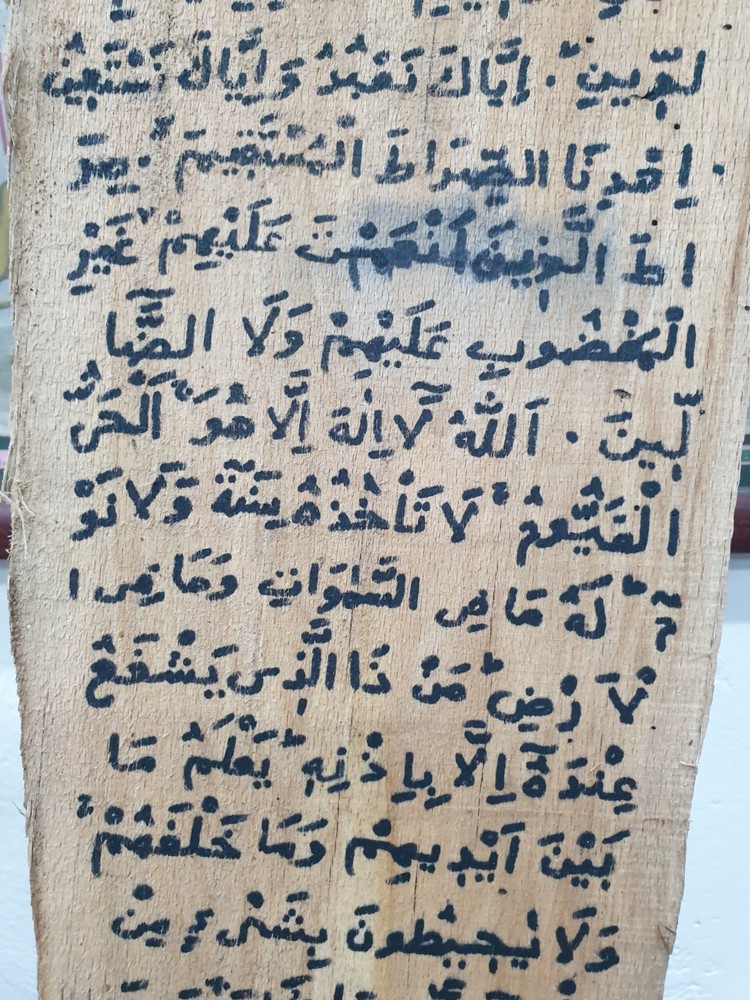 لدِّينِ ۞ اِيَّاكَ نَعْبُدُ وَاِيَّاكَ نَسْتَعِينُ
اِهْدِنَا الصِّرَاطَ الْمُسْتَقِيمَ ۞ صِرَ
اطَ الَّذِينَ اَنْعَمْتَ عَلَيْهِمْ غَيْرِ
الْمَغْضُوبِ عَلَيْهِمْ وَلَا الضَّا
لِّينَ ۞ اَللّٰهُ لَا اِلٰهَ اِلَّا هُوَ اَلْحَىُّ
الْقَيُّومُ لَا تَأْخُذُهُ سِنَةٌ وَلَا نَوْ
مٌ لَهُ مَا فِى السَّمٰوَاتِ وَمَا فِى ا
لْاَرْضِ مَنْ ذَا الَّذِى يَشْفَعُ
عِنْدَهُ اِلَّا بِاِذْنِهِ يَعْلَمُ مَا
بَيْنَ اَيْدِيهِمْ وَمَا خَلْفَهُمْ
وَلَا يُحِيطُونَ بِشَىْءٍ مِنْ